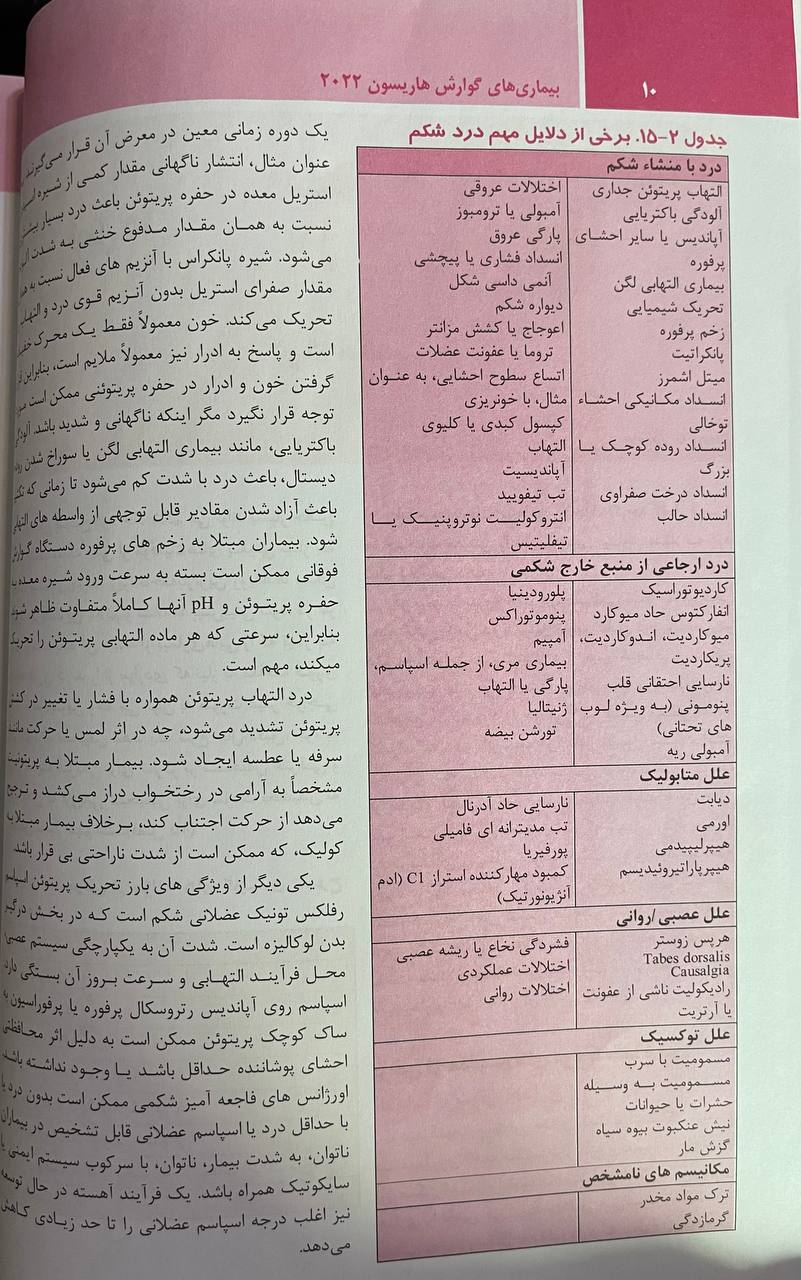 ۱۰
بیماری‌های گوارش هاریسون ۲۰۲۲
جدول ۲-۱۵. برخی از دلایل مهم درد شکم
درد با منشاء شکم
التهاب پریتوئن جداری
آلودگی باکتریایی
آپاندیس یا سایر احشای
پرفوره
بیماری التهابی لگن
تحریک شیمیایی
زخم پرفوره
پانکراتیت
میتل اشمرز
انسداد مکانیکی احشاء
توخالی
انسداد روده کوچک یا
بزرگ
انسداد درخت صفراوی
انسداد حالب
اختلالات عروقی
آمبولی یا ترومبوز
پارگی عروق
انسداد فشاری یا پیچشی
آنمی داسی شکل
دیواره شکم
اعوجاج یا کشش مزانتر
تروما یا عفونت عضلات
اتساع سطوح احشایی، به عنوان
مثال، با خونریزی
کپسول کبدی یا کلیوی
التهاب
آپاندیسیت
تب تیفویید
انتروکولیت نوتروپنیک یا
تیفلیتیس
درد ارجاعی از منبع خارج شکمی
کاردیوتوراسیک
انفارکتوس حاد میوکارد
میوکاردیت، اندوکاردیت،
پریکاردیت
نارسایی احتقانی قلب
پنومونی (به ویژه لوب
های تحتانی)
آمبولی ریه
پلورودینیا
پنوموتوراکس
آمپیم
بیماری مری، از جمله اسپاسم،
پارگی یا التهاب
ژنیتالیا
تورشن بیضه
علل متابولیک
دیابت
اورمی
هیپرلیپیدمی
هیپرپاراتیروئیدیسم
نارسایی حاد آدرنال
تب مدیترانه ای فامیلی
پورفیریا
کمبود مهارکننده استراز C1 (ادم
آنژیونورتیک)
علل عصبی/روانی
هرپس زوستر
Tabes dorsalis
Causalgia
رادیکولیت ناشی از عفونت
یا آرتریت
فشردگی نخاع یا ریشه عصبی
اختلالات عملکردی
اختلالات روانی
علل توکسیک
مسمومیت با سرب
مسمومیت به وسیله
حشرات یا حیوانات
نیش عنکبوت بیوه سیاه
گزش مار
مکانیسم های نامشخص
ترک مواد مخدر
گرمازدگی
یک دوره زمانی معین در معرض آن قرار می‌گیرند
عنوان مثال، انتشار ناگهانی مقدار کمی از شیره
استریل معده در حفره پریتوئن باعث درد بسیار
نسبت به همان مقدار مدفوع خنثی به شدت
می‌شود. شیره پانکراس با آنزیم های فعال نسبت به
مقدار صفرای استریل بدون آنزیم قوی درد و التهاب
تحریک می‌کند. خون معمولاً فقط یک محرک
است و پاسخ به ادرار نیز معمولاً ملایم است، بنابراین
گرفتن خون و ادرار در حفره پریتوئنی ممکن است
توجه قرار نگیرد مگر اینکه ناگهانی و شدید باشد.
باکتریایی، مانند بیماری التهابی لگن یا سوراخ شدن
دیستال، باعث درد با شدت کم می‌شود تا زمانی که
باعث آزاد شدن مقادیر قابل توجهی از واسطه های
شود. بیماران مبتلا به زخم های پرفوره دستگاه گوارش
فوقانی ممکن است بسته به سرعت ورود شیره معده
حفره پریتوئن و pH آنها کاملاً متفاوت ظاهر شوند
بنابراین، سرعتی که هر ماده التهابی پریتوئن را تحریک
میکند، مهم است.
درد التهاب پریتوئن همواره با فشار یا تغییر در
پریتوئن تشدید می‌شود، چه در اثر لمس یا حرکت مانند
سرفه یا عطسه ایجاد شود. بیمار مبتلا به پریتونیت
مشخصاً به آرامی در رختخواب دراز می‌کشد و ترجیح
می‌دهد از حرکت اجتناب کند، برخلاف بیمار مبتلا
کولیک، که ممکن است از شدت ناراحتی بی قرار باشد.
یکی دیگر از ویژگی های بارز تحریک پریتوئن اسپاسم
رفلکس تونیک عضلانی شکم است که در بخش درگیر
بدن لوکالیزه است. شدت آن به یکپارچگی سیستم عصبی،
محل فرآیند التهابی و سرعت بروز آن بستگی دارد.
اسپاسم روی آپاندیس رتروسکال پرفوره یا پرفوراسیون
ساک کوچک پریتوئن ممکن است به دلیل اثر محافظتی
احشای پوشاننده حداقل باشد یا وجود نداشته باشد.
اورژانس های فاجعه آمیز شکمی ممکن است بدون درد یا
با حداقل درد یا اسپاسم عضلانی قابل تشخیص در بیماران
ناتوان، به شدت بیمار، ناتوان، با سرکوب سیستم ایمنی یا
سایکوتیک همراه باشد. یک فرآیند آهسته در حال توسعه
نیز اغلب درجه اسپاسم عضلانی را تا حد زیادی کاهش
می‌دهد.